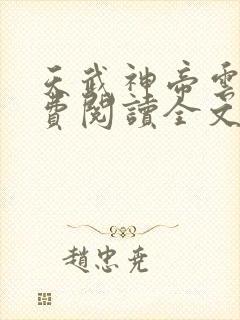 天武神帝雲
費閱讀全文
趙忠堯